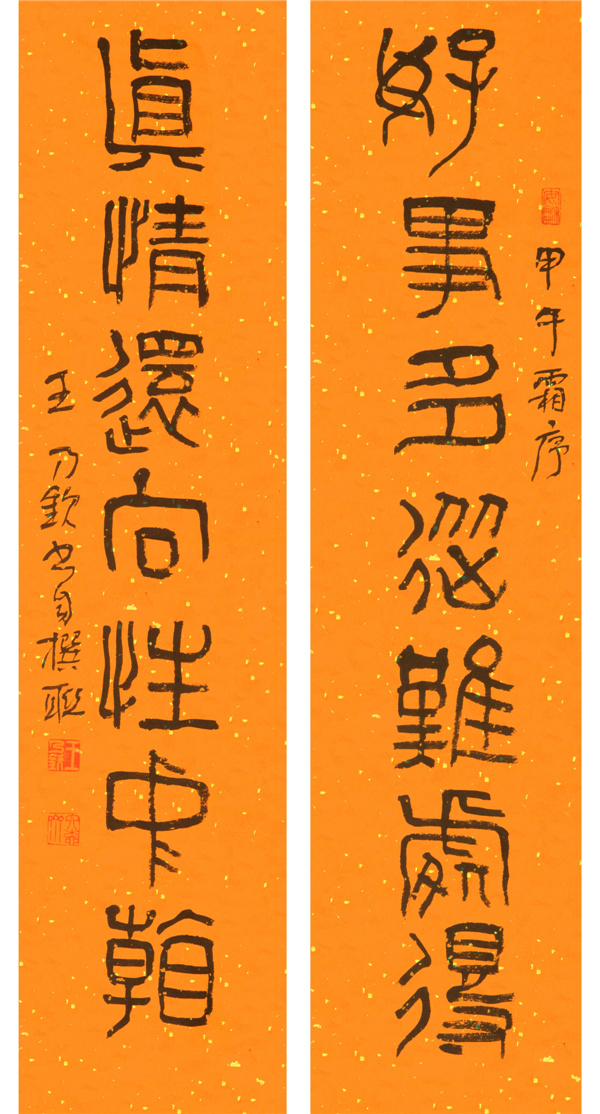 好事多從難處得
甲午霜序
眞情還向性中朝
王乃欽书自撰联